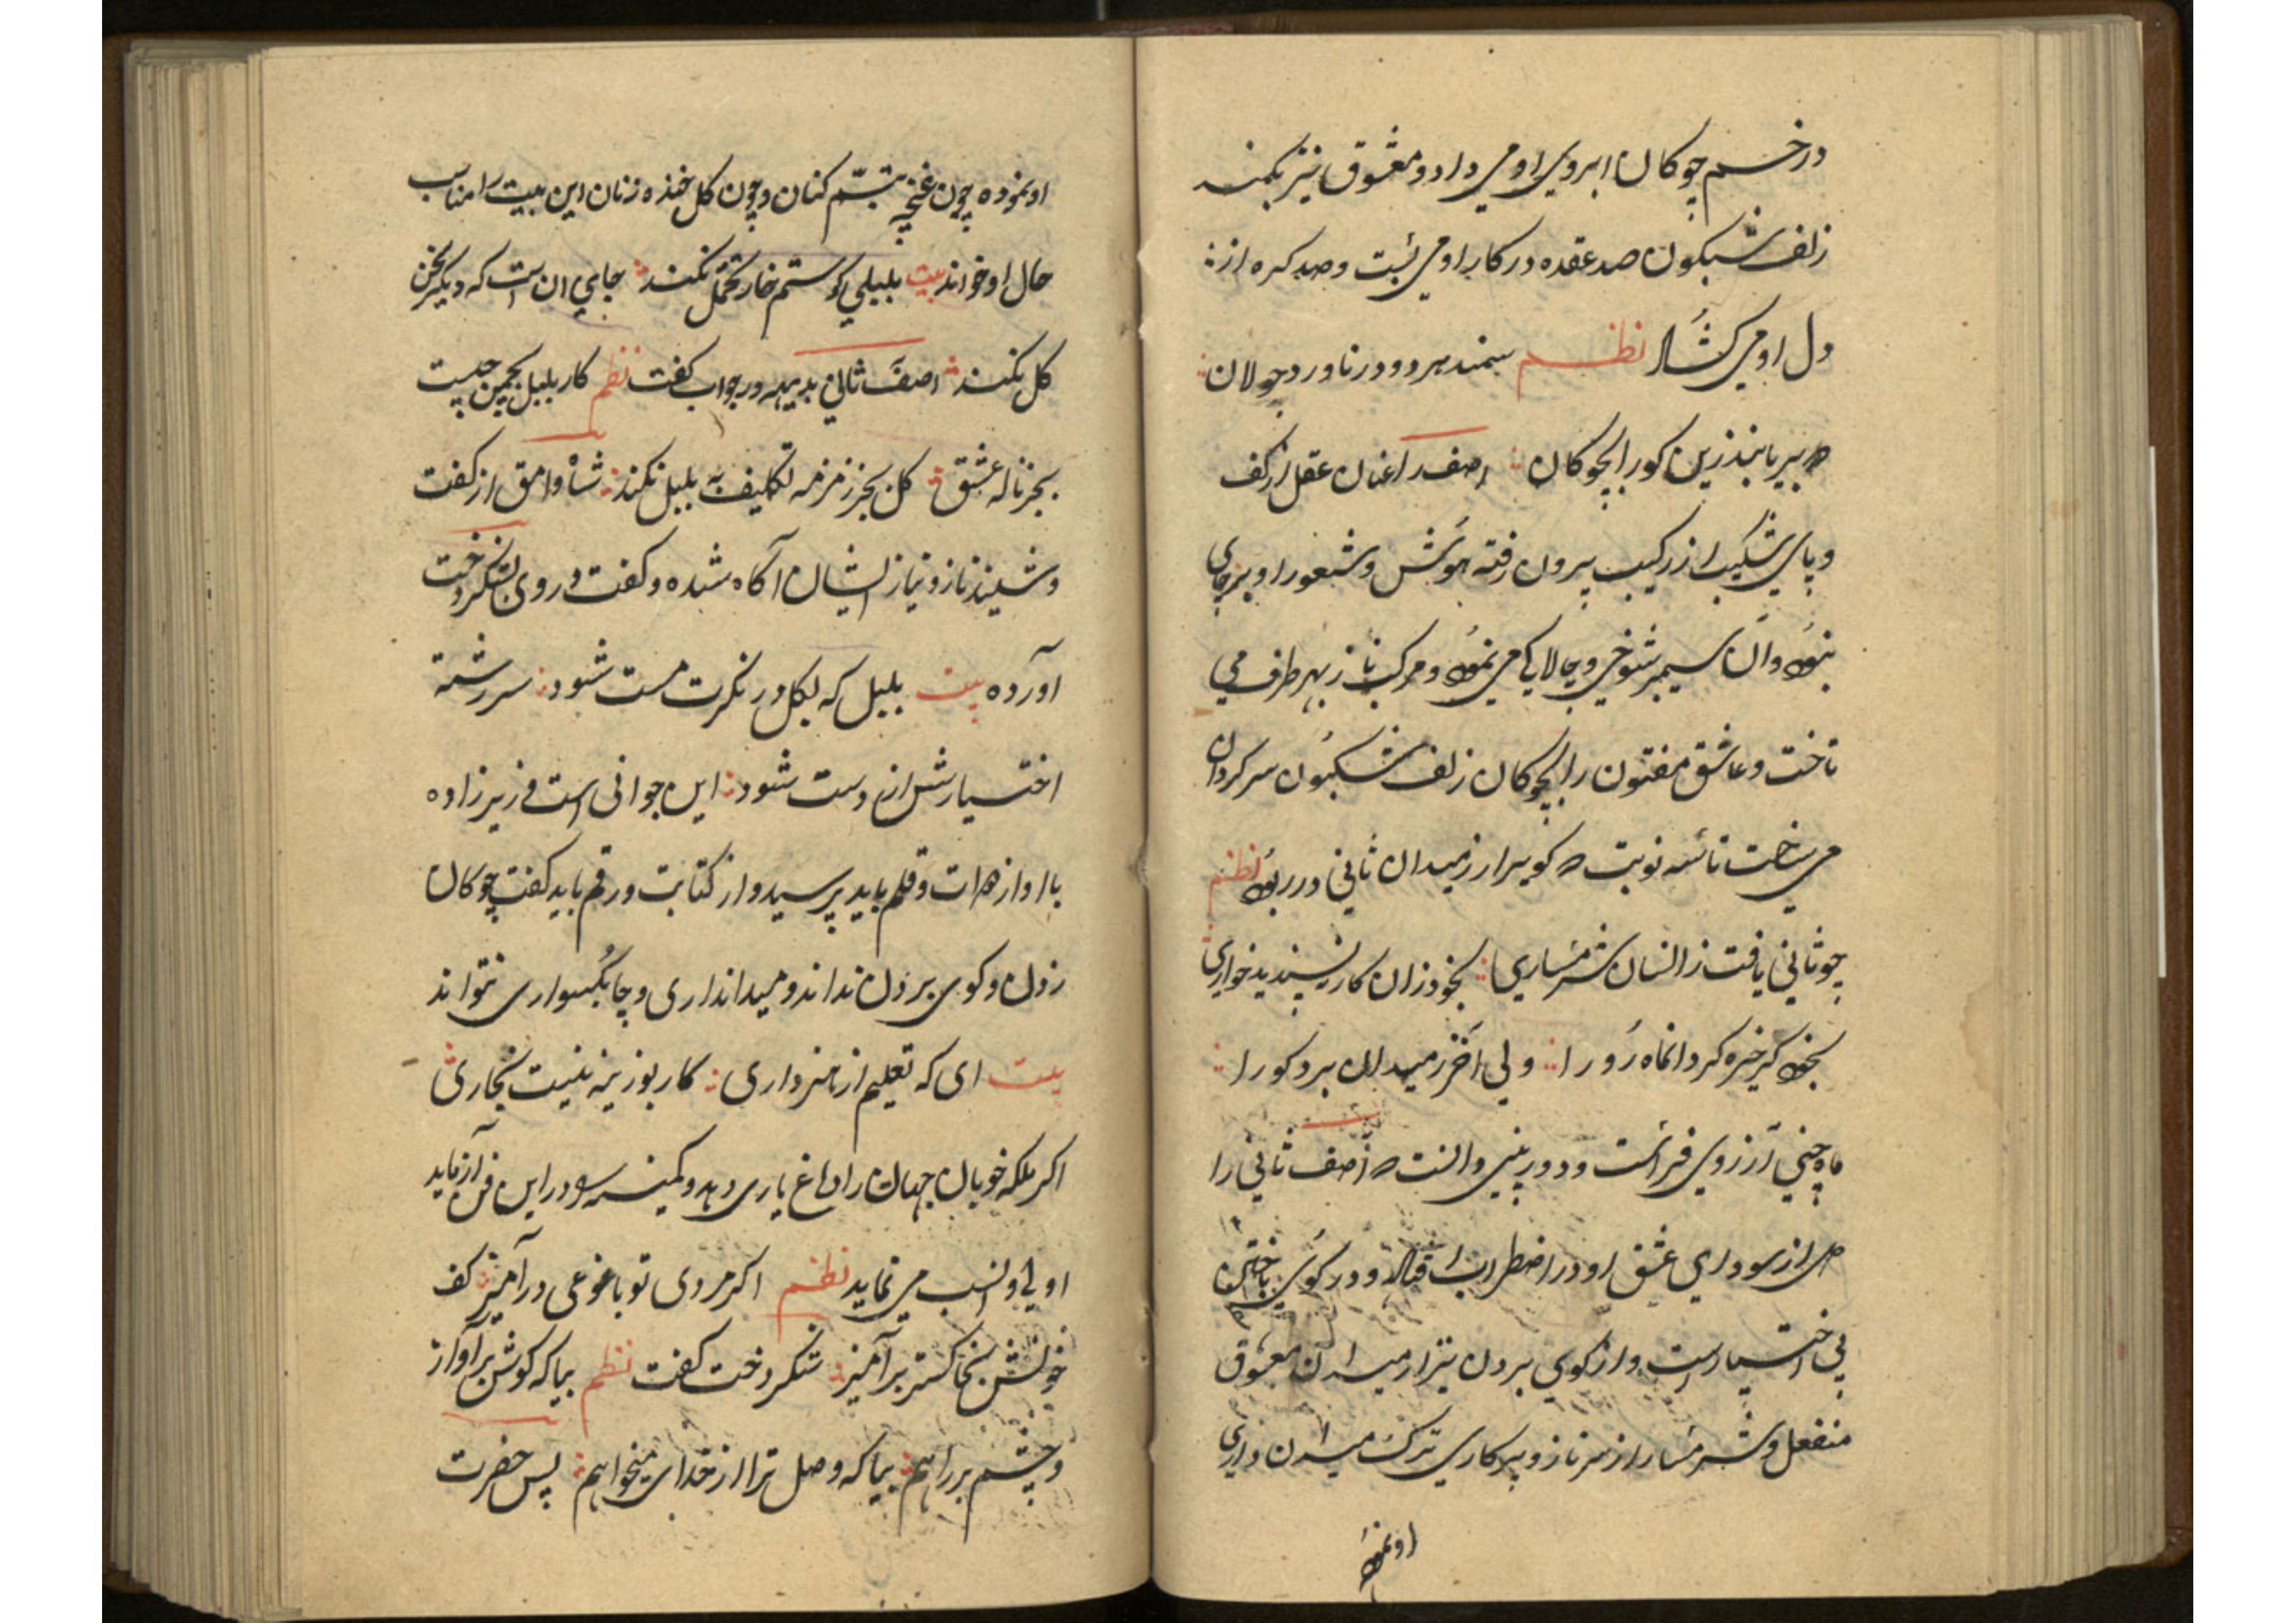 در خم چوکان ابروی او می داد و معشوق نیز بکمند
زلف شبکون صد عقده در کار او می بست و صد کره از
دل او می کشاد نظم سمند هر دو در ناورد جولان
بنذرین کور الچوکان اصف را عنان عقل از کف
و پای شکیب از رکیب بیرون رفته هوش و شعور او بر جای
نبود و ان سیمبر شوخی و چالاکی می نمود و مرکب ناز بهر طرف می
تاخت و عاشق مفتون را بچوکان زلف شبکون سرکردان
می ساخت تا سه نوبت کوی را از میدان ثانی در ربود نظم
چو ثانی یافت زانسان شرمساری بخود زان کار نپسندید خواری
بخود خیره کرد انماه رو را ولی اخر ز میدان برد کو را
ماه چینی از روی فراست و دوربینی دانست که آصف ثانی را
دل از سودای عشق او در اضطراب افتاده و در کوی باختن
بی اختیار است و از کوی بردن بیزار میدان معشوق
منفعل و شرمسار از سر ناز و پرکاری ترک میدان داری
او نموده
او نموده چون غنچه تبسم کنان و چون کل خنده زنان این بیت را مناسب
حال او خواند بیت بلبلی کو ستم خار تحمل نکند جای ان است که دیکر سخن
کل نکند اصف ثانی بدیهه در جواب کفت نظم کار بلبل بچمن چیست
بجز ناله عشق کل بجز زمزمه تکلیف به بلبل نکند شاه وامق از کفت
و شنید ناز و نیاز ایشان آکاه شده و کفت و روی بشکردخت
آورده بیت بلبل که بکل در نکرت مست شود سررشته
اختیارش از دست شود این جوانی است وزیرزاده
با او از دوات و قلم باید پرسید و از کتابت و رقم باید کفت چوکان
زدن و کوی بردن نداند و میدانداری و چابکسواری نتواند
بیت ای که تعلیم از هنر داری کار بوزینه نیست نجاری
اکر ملکه خوبان جهان را دماغ یاری دهد و کمینه را در این فن آزماید
اولی و انسب می نماید نظم اکر مردی تو با غوغی درآمیز کف
خونش بخاکستر برآمیز شکردخت کفت نظم بیا که کوش برآواز
و چشم بر راهم بیا که وصل ترا از خدای میخواهم پس حضرت